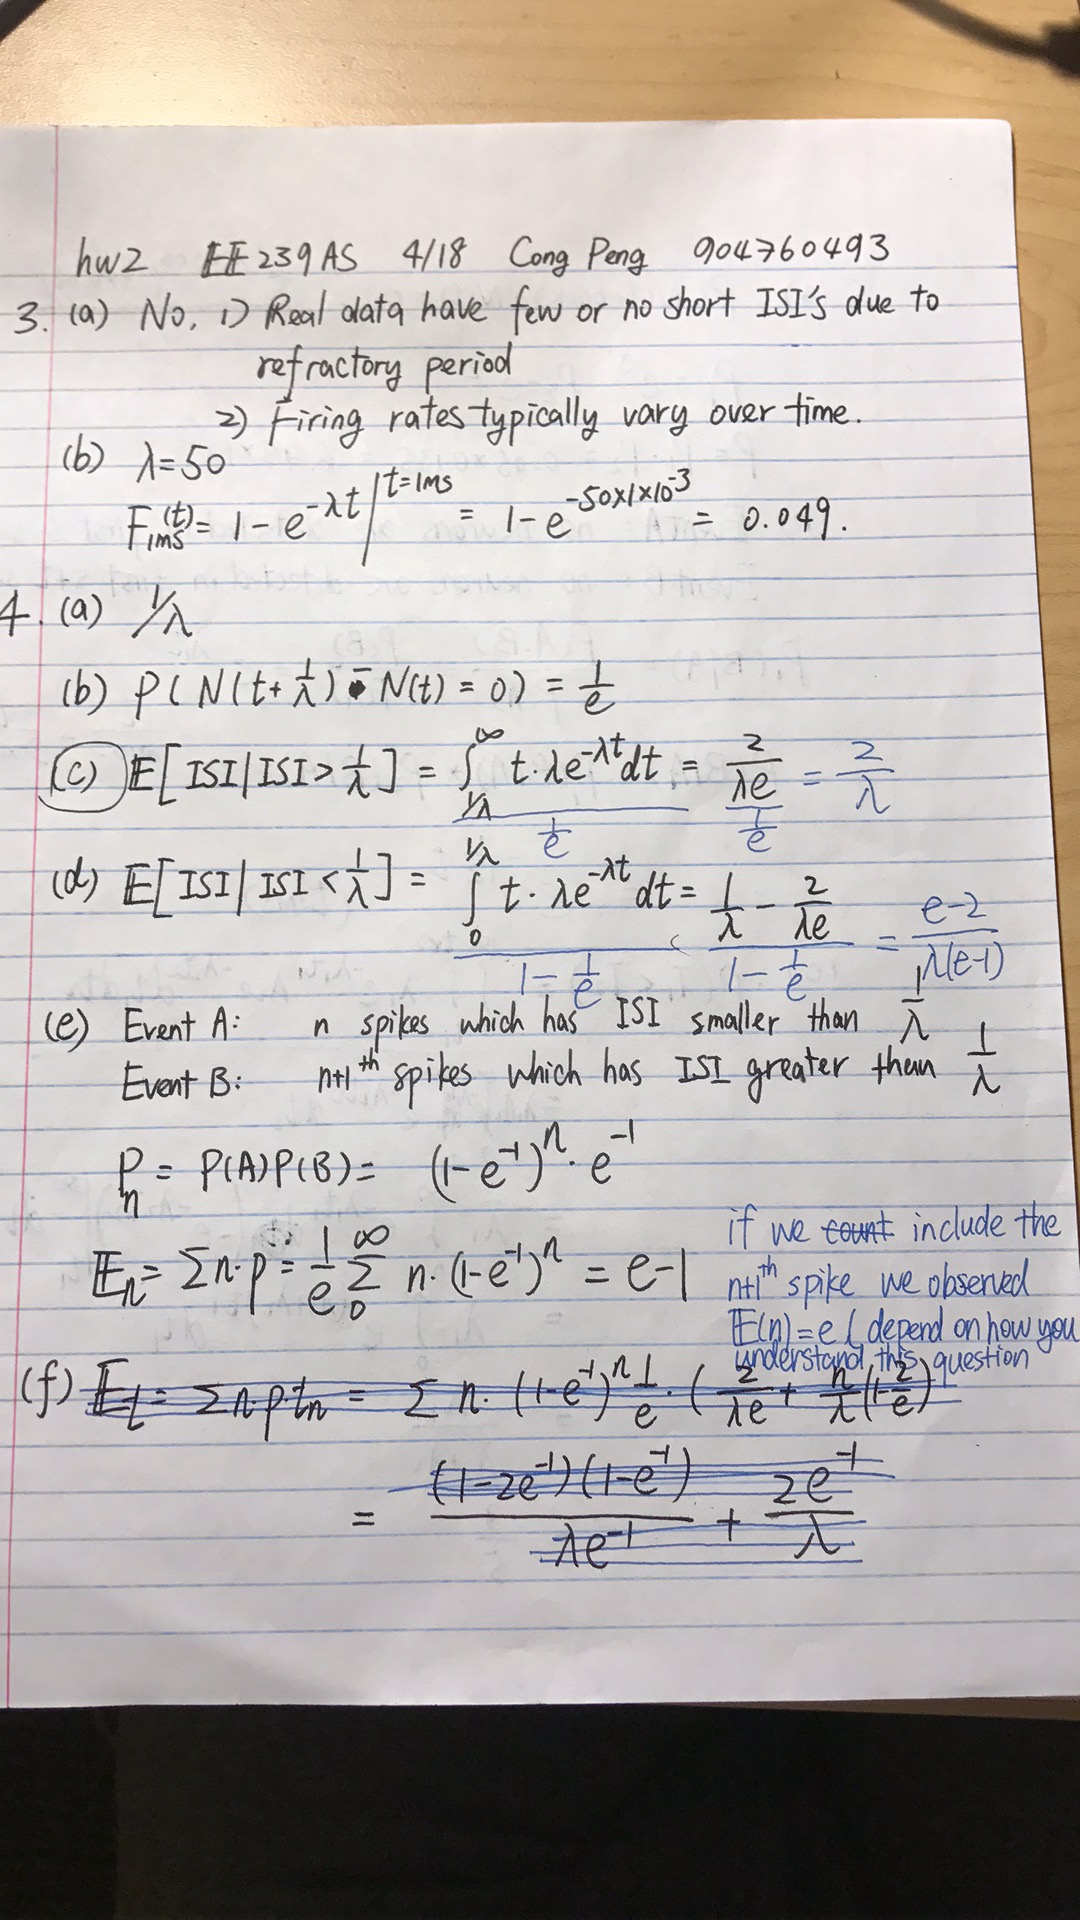 hw2 EE239AS 4/18 Cong Peng 904760493
3. (a) No, 1) Real data have few or no short ISI's due to
refractory period
2) Firing rates typically vary over time.
(b) λ=50
F_{1ms}(t) = 1 - e^{-λt} |^{t=1ms} = 1 - e^{-50×1×10^{-3}} = 0.049.
4. (a) 1/λ
(b) P(N(t+1/λ) - N(t) = 0) = 1/e
(c) E[ISI | ISI > 1/λ] = (∫_{1/λ}^{∞} t·λe^{-λt}dt)/(1/e) = (2/(λe))/(1/e) = 2/λ
(d) E[ISI | ISI < 1/λ] = (∫_0^{1/λ} t·λe^{-λt}dt)/(1 - 1/e) = (1/λ - 2/(λe))/(1 - 1/e) = (e-2)/(λ(e-1))
(e) Event A: n spikes which has ISI smaller than 1/λ
Event B: n+1^{th} spikes which has ISI greater than 1/λ
P_n = P(A)P(B) = (1-e^{-1})^n · e^{-1}
E_n = Σn·p = 1/e Σ_0^∞ n·(1-e^{-1})^n = e-1
if we count include the
n+1^{th} spike we observed
E(n)=e (depend on how you
understand this question
(f) E_t = Σn·p·t_n = Σ n·(1-e^{-1})^n 1/e · (2/(λe) + n/λ(1-2/e))
= (1-2e^{-1})(1-e^{-1})/(λe^{-1}) + 2e^{-1}/λ